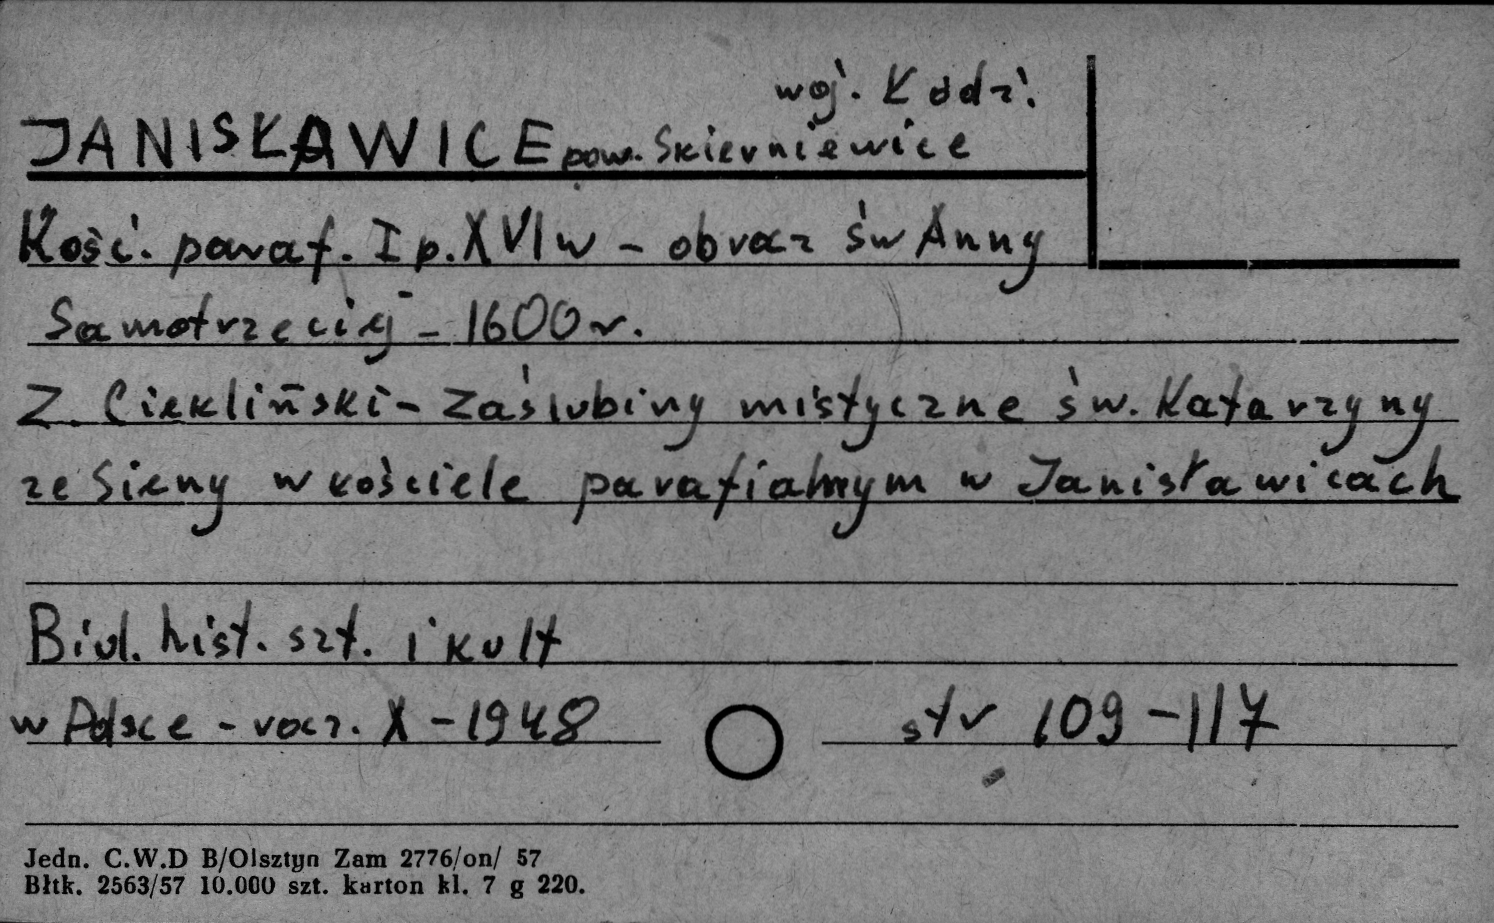 woj. Łódź.
JANISŁAWICE pow. Skierniewice
Kość. paraf. I p. XVI w – obraz św Anny
Samotrzeciej – 1600 r.
Z. Ciekliński – Zaślubiny mistyczne św. Katarzyny
ze Sieny w kościele parafialnym w Janisławicach
Biul. hist. szt. i kult
w Polsce – rocz. X – 1948 str 109 – 117
Jedn. C.W.D B/Olsztyn Zam 2776/on/ 57
Błtk. 2563/57 10.000 szt. karton kl. 7 g 220.